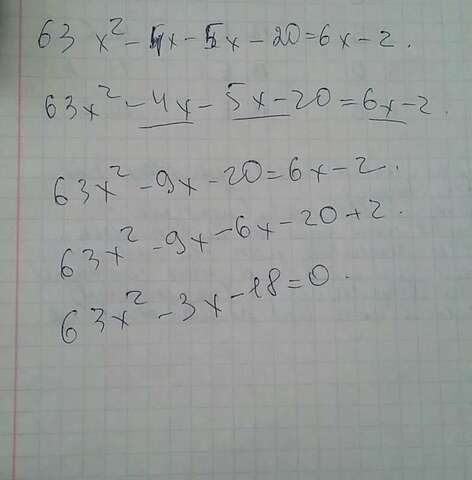 63 x² - 4x - 5x - 20 = 6x - 2.
63x² - 4x - 5x - 20 = 6x - 2.
63x² - 9x - 20 = 6x - 2.
63x² - 9x - 6x - 20 + 2.
63x² - 3x - 18 = 0.